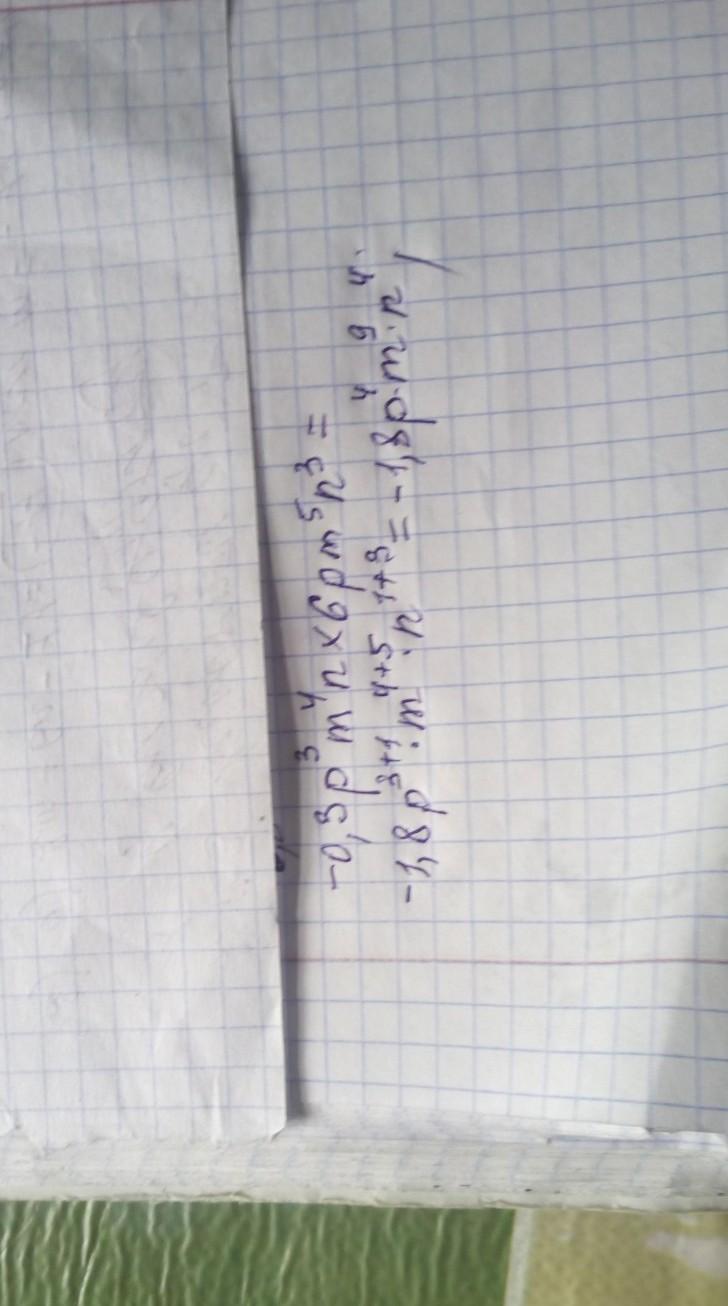 -0,3p³m⁴n×6pm⁵n³=
-1,8p³⁺¹·m⁴⁺⁵·n¹⁺³=-1,8p⁴·m⁹·n⁴·/